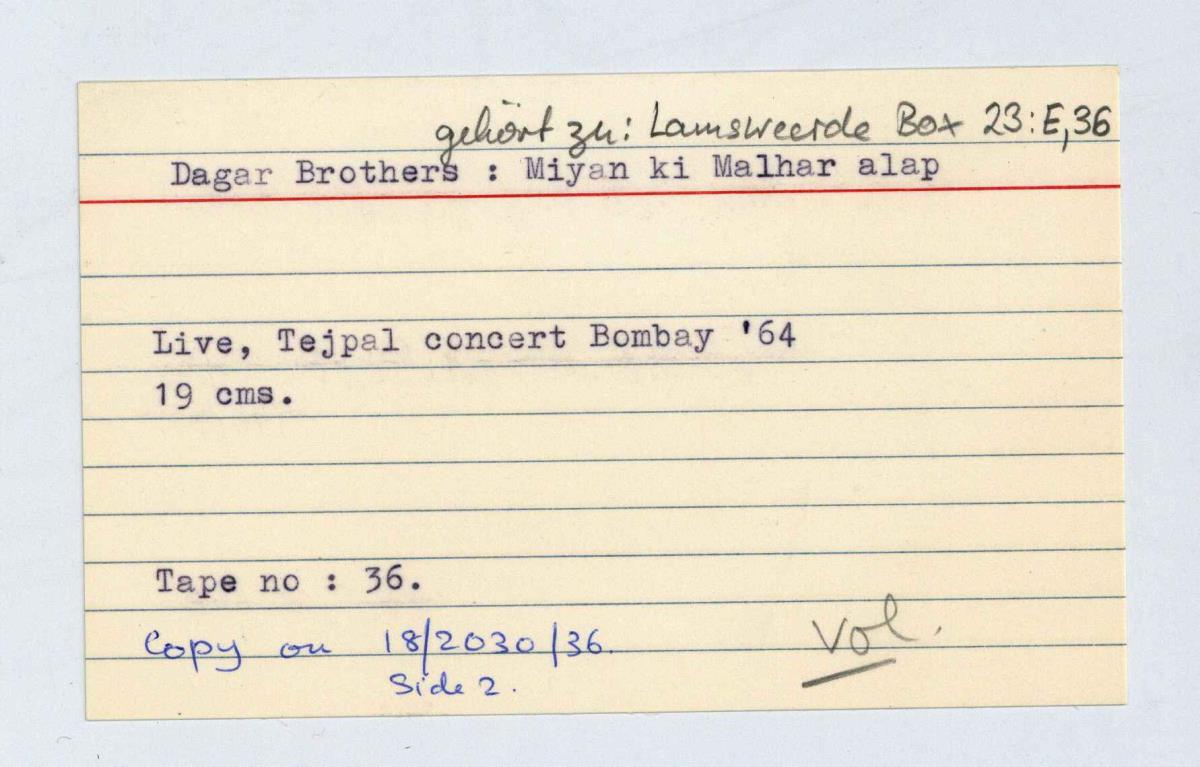 gehört zu: Lamsweerde Box 23:E,36
Dagar Brothers : Miyan ki Malhar alap
Live, Tejpal concert Bombay '64
19 cms.
Tape no : 36.
Copy on 18/2030/36.
Side 2.
Vol.